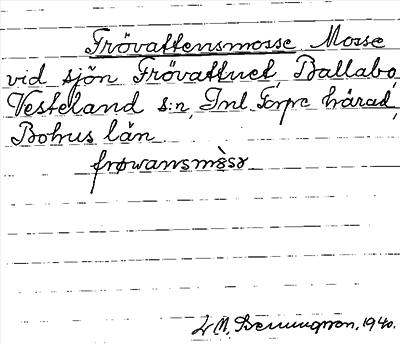 Frövattensmosse Mosse
vid sjön Frövattnet, Ballabo,
Vesteland s:n, Inl. Torpe härad,
Bohus län
frøwansmòsə
1940.